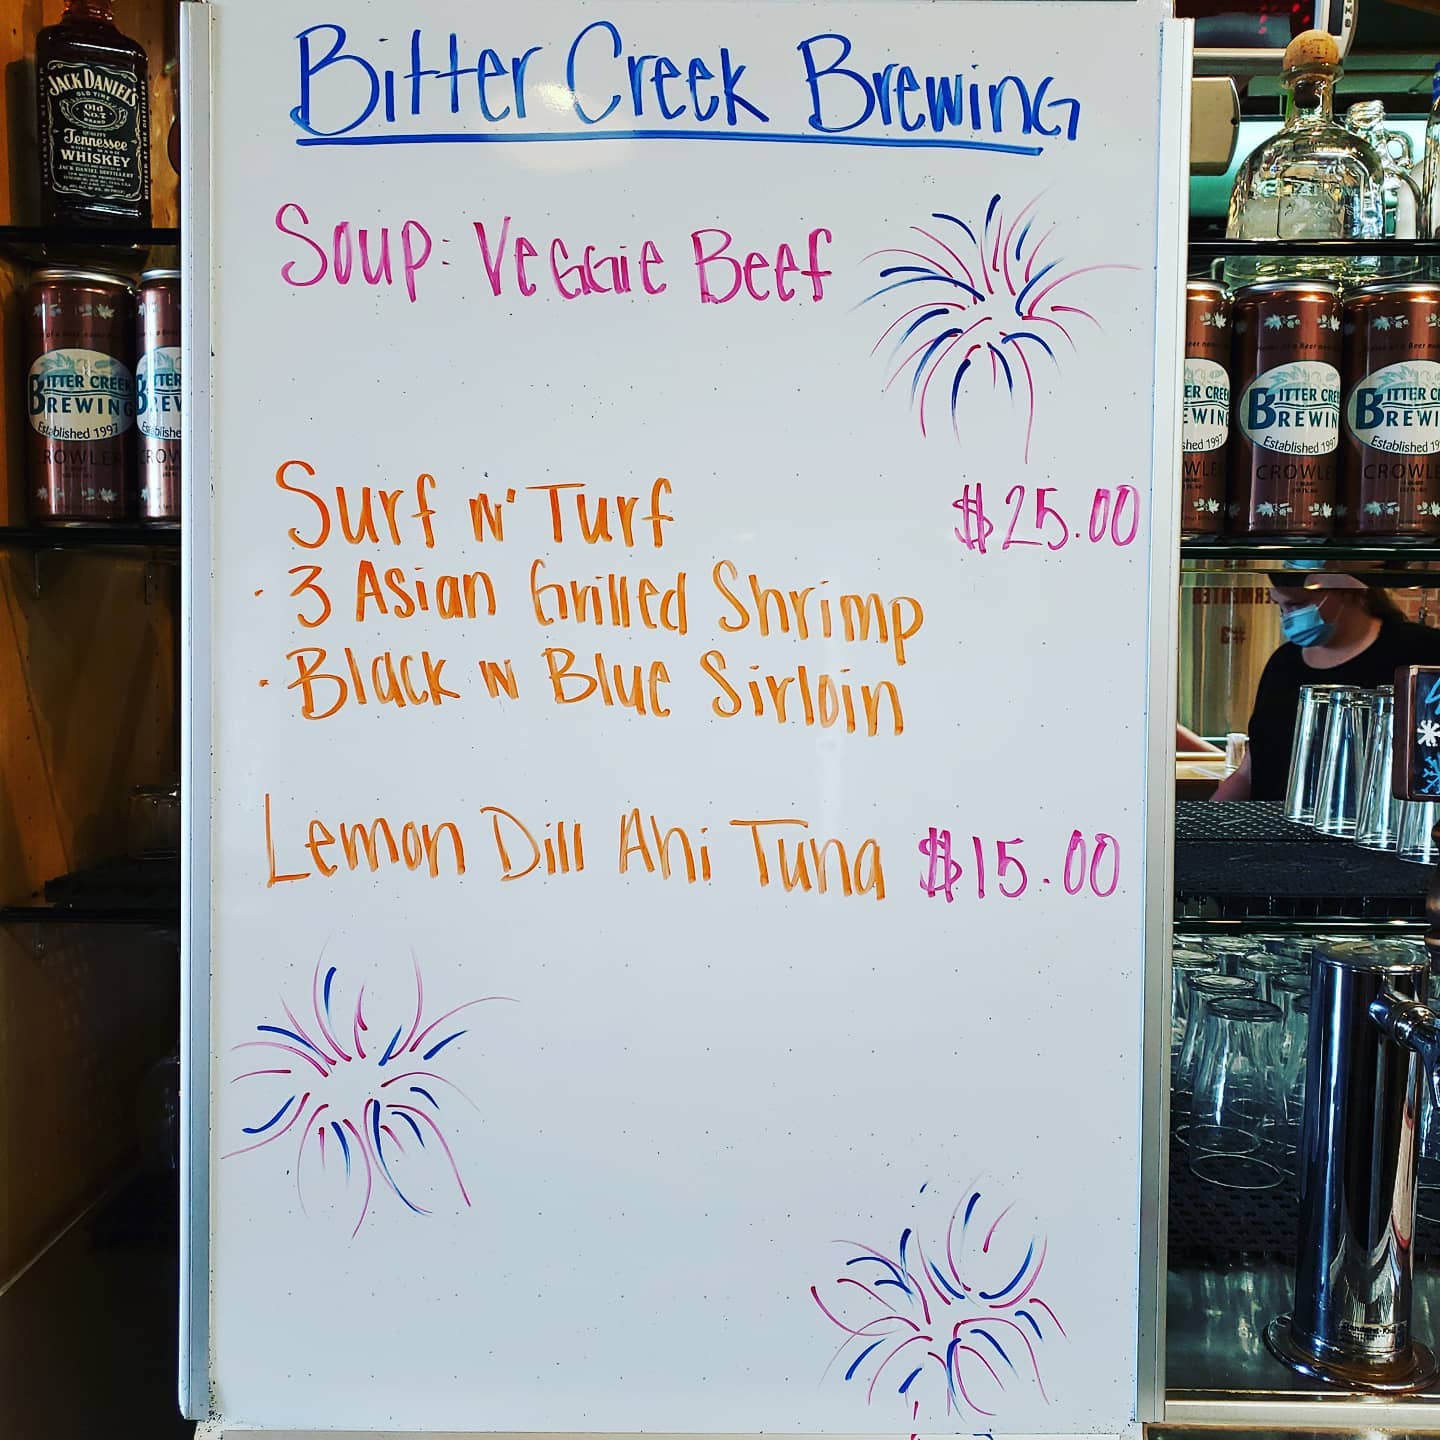 Bitter Creek Brewing
Soup: Veggie Beef
Surf n' Turf $25.00
· 3 Asian Grilled Shrimp
· Black n Blue Sirloin
Lemon Dill Ahi Tuna $15.00
JACK DANIEL'S
OLD TIME
Old
NO.7
BRAND
QUALITY
Tennessee
WHISKEY
JACK DANIEL DISTILLERY
BITTER CREEK
BREWING
Established 1997
CROWLER
ITTER
REW
ishe
CROW
ER CREE
EWING
shed 1997
WLE
BITTER CREE
BREWIN
Established 199
CROWLE
BITTER C
BREW
Established 1
CROWLE
FERMENTER
#3